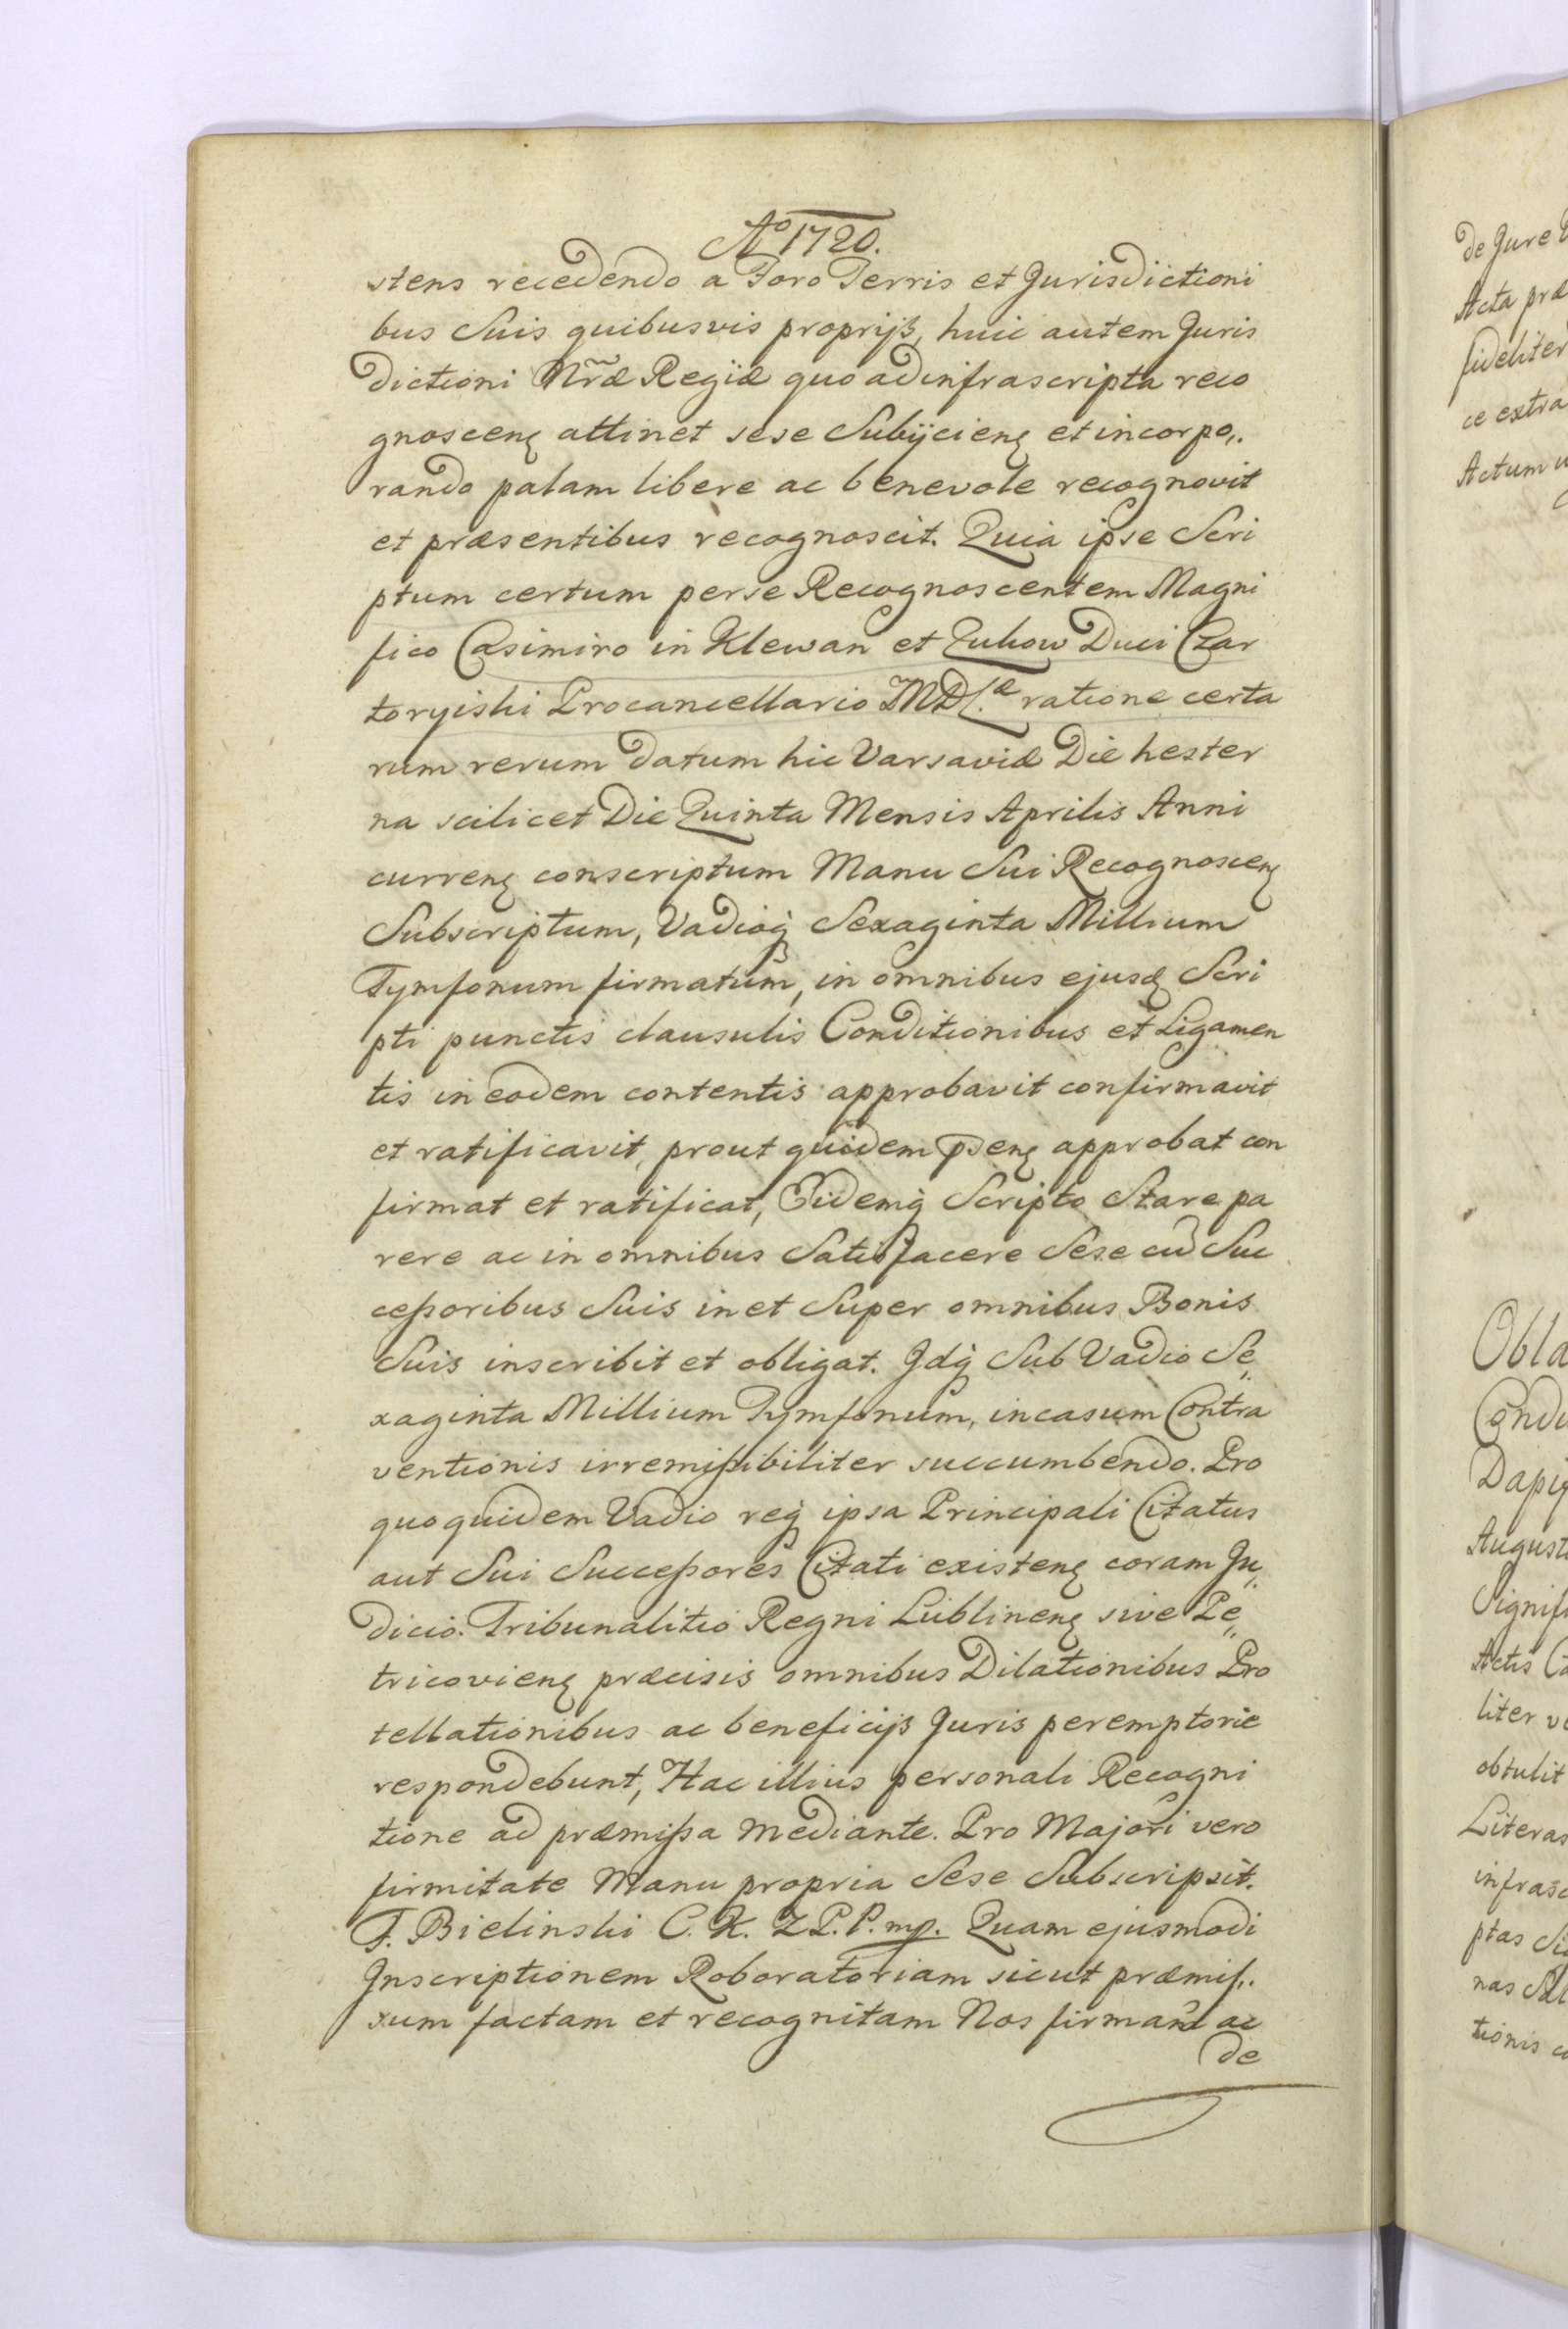 Aº 1720.
stens recedendo a Foro Terris et Jurisdictioni
bus Suis quibusvis proprijs, huic autem Juris
dictioni Nr̃æ Regiæ quo ad infrascripta reco
gnoscenꝫ attinet sese Subijcienꝫ et incorpo„
rando palam libere ac benevole recognovit
et præsentibus recognoscit. Quia ipse Scri
ptum certum per se Recognoscentem Magni
fico Casimiro in Klewan et Zukow Duci Czar
toryiski Procancellario MDLæ ratione certa
rum rerum datum hic Varsaviæ Die hester
na scilicet Die Quinta Mensis Aprilis Anni
currenꝫ conscriptum Manu Sui Recognoscenꝫ
Subscriptum, Vadioq̣ Sexaginta Millium
Tymfonum firmatum, in omnibus ejusdꝫ Scri
pti punctis clausulis Conditionibus et Ligamen
tis in eodem contentis approbavit confirmavit
et ratificavit, prout quidem p̃senꝫ approbat con
firmat et ratificat, Eidemq̣ Scripto Stare pa
rere ac in omnibus Satisfacere Sese cũ Suc
cessoribus Suis in et Super omnibus Bonis
Suis inscribit et obligat. Idq̣ Sub Vadio Se„
xaginta Millium Tymfonum, in casum Contra
ventionis irremissibiliter succumbendo. Pro
quo quidem Vadio req̣ ipsa Principali Citatus
aut Sui Successores Citati existenꝫ coram Ju„
dicio Tribunalitio Regni Lublinenꝫ sive Pe„
tricovienꝫ præcisis omnibus Dilationibus Pro
tellationibus ac beneficijs Juris peremptorie
respondebunt, Hac illius personali Recogni
tione ad præmissa mediante. Pro Majori vero
firmitate Manu propria Sese Subscripsit.
F. Bielinski C. K. Z P. P. mp. Quam ejusmodi
Inscriptionem Roboratoriam sicut præmis„
sum factam et recognitam Nos firmam ac
de
de Jure
Acta præ
fideliter
ce extra
Actum
Obla
Condi
Dapif
August
Signifi
Actis
liter
obtulit
Literas
infrasc
ptas
nas
tionis